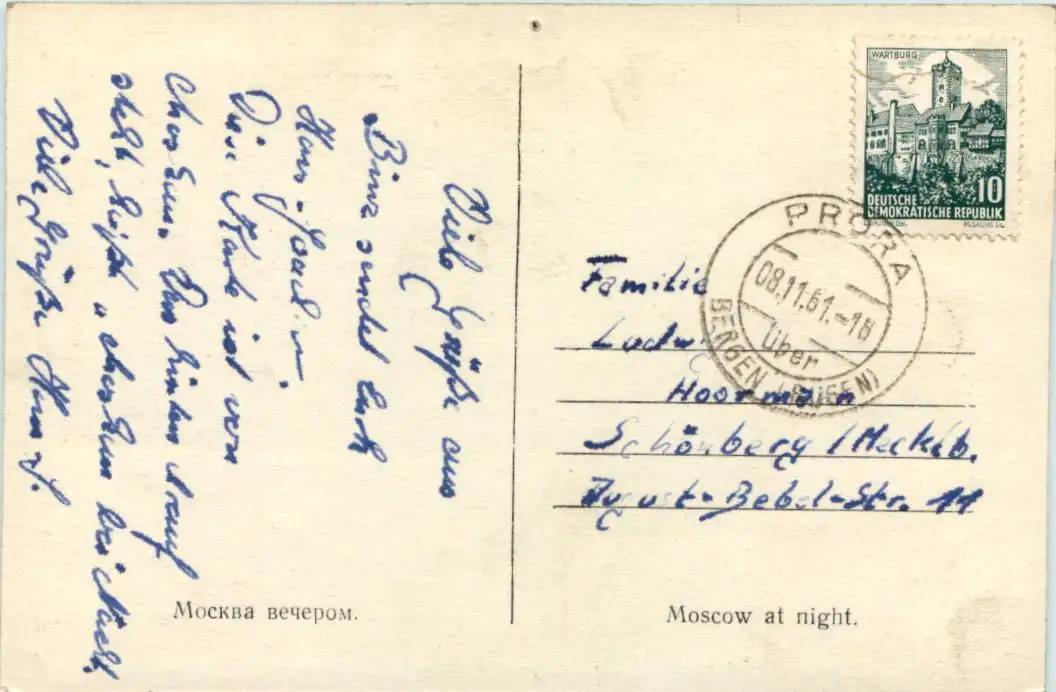 Viele Grüße aus
Binz sendet Euch
Hans-Joachim.
Die Karte ist von
Moskau. Was hinten drauf
steht, heißt „Moskau bei Nacht.
Viele Grüße Hans J.
Москва вечером.
WARTBURG
10
DEUTSCHE
DEMOKRATISCHE REPUBLIK
PRORA
08.11.61.-18
über
BERGEN (RÜGEN)
Familie
Ludwig
Hoormann
Schönberg /Meckb.
August-Bebel-Str. 11
Moscow at night.